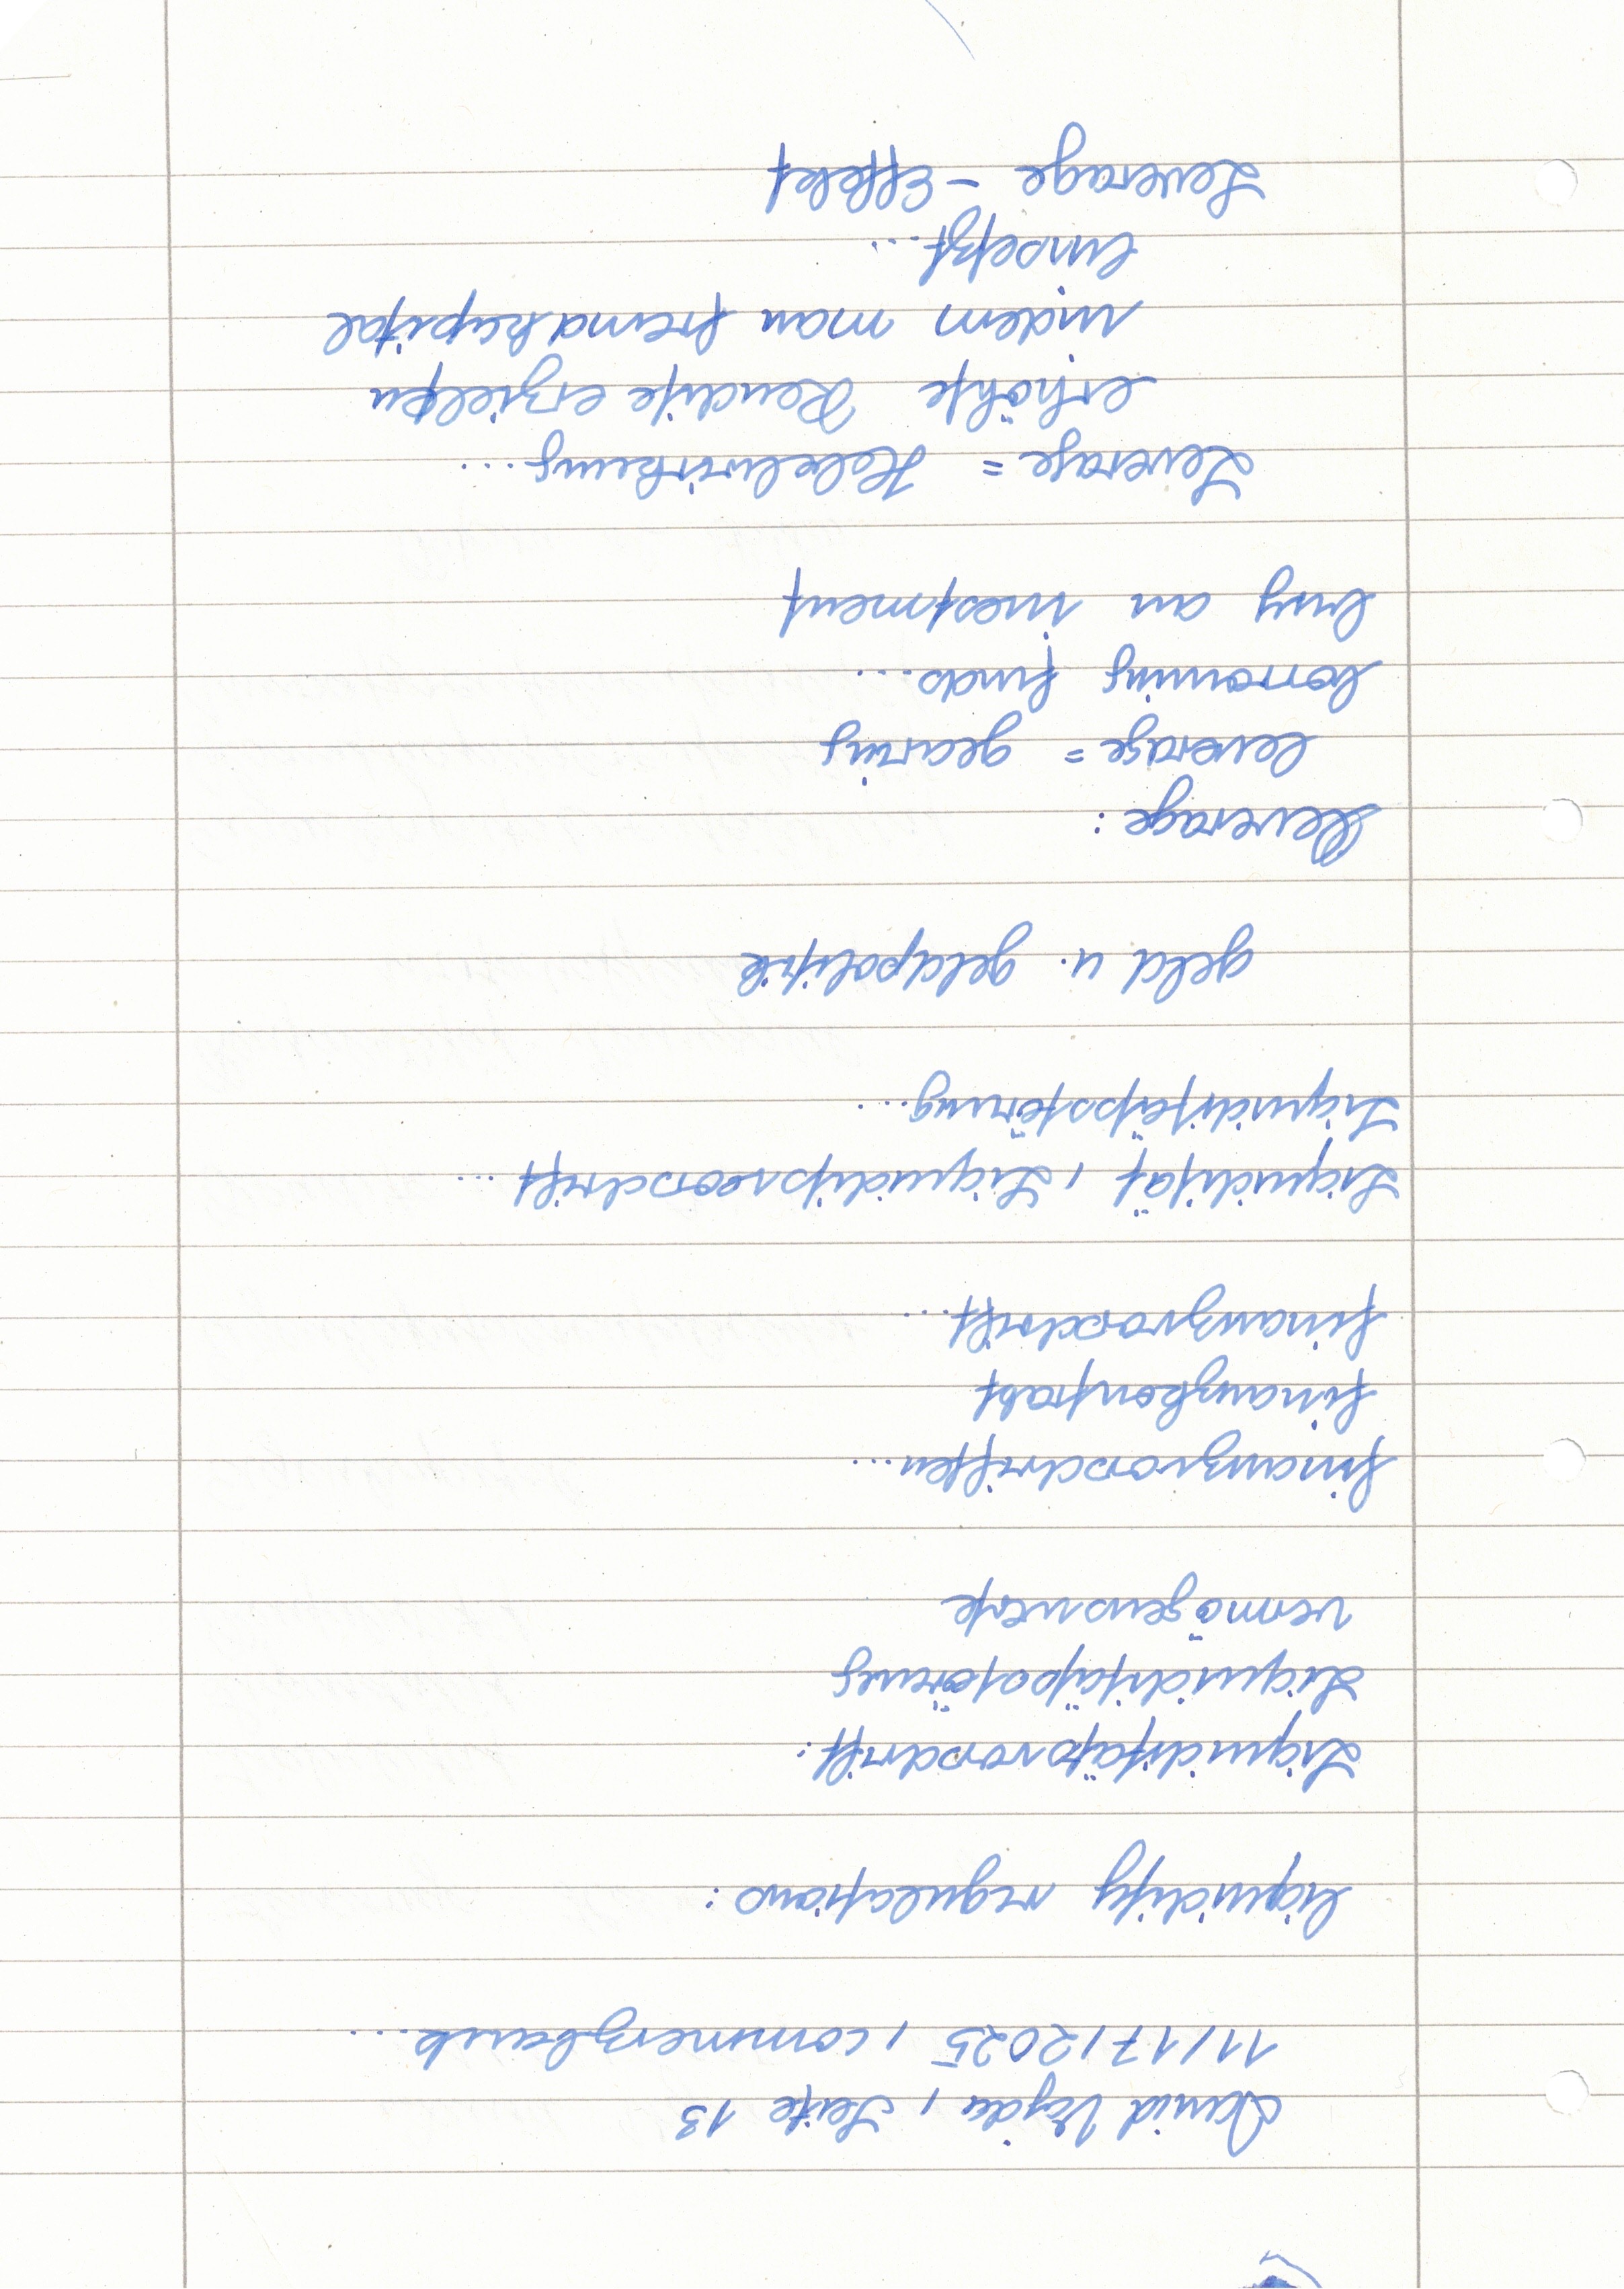 David Vajda, Seite 13
11/17/2025, commerzbank...
liquidity regulations:
Liquiditätsvorschrift:
Liquiditätsstörung
vermögenswerte
finanzvorschriften...
finanzkontrakt
finanzvorschrift...
Liquidität, Liquiditsvorschrift...
Liquiditätsstörung...
geld u. geldpolitik
leverage:
leverage = gearing
borrowing funds...
buy an investment
Leverage = Hebelwirkung...
erhöhte Rendite erzielen
indem man fremdkapital
einsetzt...
Leverage - Effekt